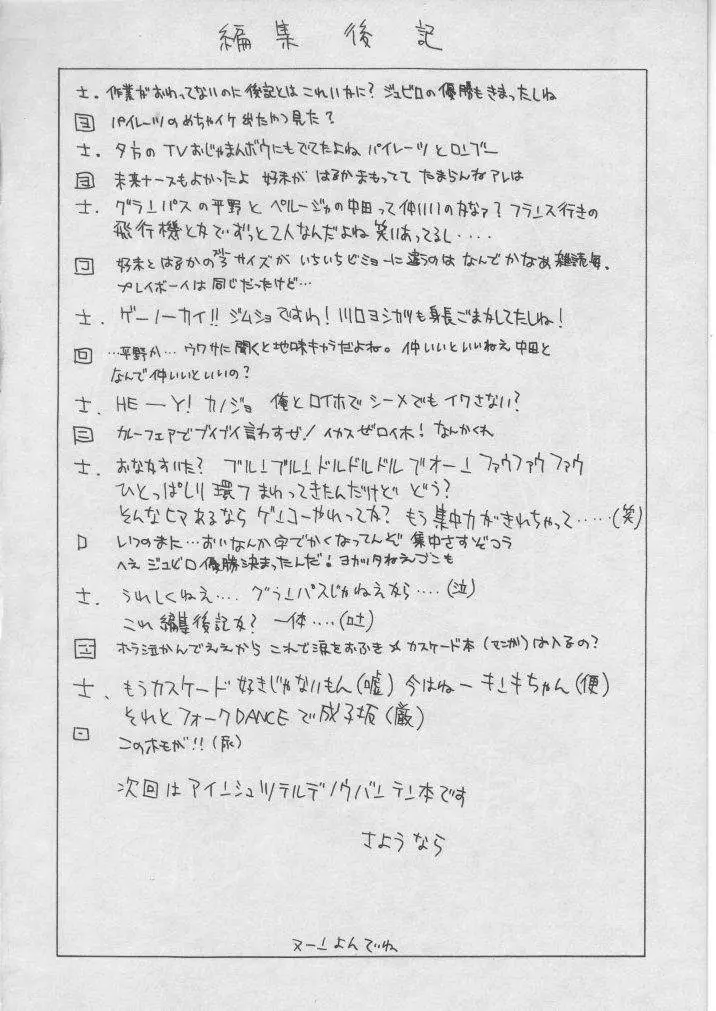 編集後記
士. 作業がおわってないのに後記とはこれいかに? ジュビロの優勝もきまったしね
ヨ パイレーツのめちゃイケ出たやつ見た?
士. 夕方のTVおじゃまんボウにもでてたよね パイレーツとローブー
ヨ 未来ナースもよかったよ 好未がはるかまもってて たまらんねアレは
士. グランパスの平野とペルージャの中田って仲いいのかなァ? フランス行きの
飛行機とかでずっと2人なんだよね笑いあってるし・・・・
コ 好未とはるかのサイズがいちいちビミョーに違うのはなんでかなあ雑誌毎.
プレイボーイは同じだったけど…
士. ゲーノーカイ!! ジムショですわ! 川口ヨシカツも身長ごまかしてたしね!
回 …平野か… ウワサに聞くと地味キャラだよね。仲いいといいねえ中田と
なんで仲いいといいの?
士. HEーY! カノジョ 俺とロイホでシーメでもイワさない?
三 カレーフェアでブイブイ言わすぜ! イカスゼロイホ! なんかくれ
士. おなかすいた? ブルンブルンドルドルドルでオーン ファウファウファウ
ひとっぱしり環7まわってきたんだけど どう?
そんなヒマあるならゲンコーやれってか? もう集中力がきれちゃって……(笑)
ロ いつのまに…おいなんか字でかくなってんぞ 集中さすぞコラ
へえ ジュビロ優勝決まったんだ! ヨカッタねえゴンも
士. うれしくねえ…. グランパスじゃねえなら….(泣)
これ編集後記か? 一体….(吐)
ホラ泣かんでええから これで涙をおふき メカスケード本(マンガ)は入るの?
士. もうカスケード好きじゃないもん(嘘) 今はねーキンキちゃん(便)
それとフォークDANCEで成子坂(厳)
このホモが!!(尿)
次回はアインシュツテルデノウバンテン本です
さようなら
ヌーンよんでね